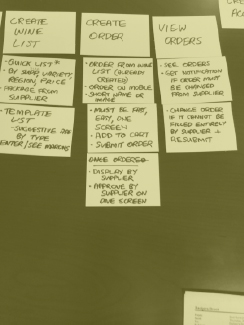 CREATE
WINE
LIST
· QUICK LIST
· BY SHOP, VARIETY,
REGION, PRICE
· PACKAGE FROM
SUPPLIER
· TEMPLATE
LIST
BY TYPE
ENTER/SEE MARGINS
CREATE
ORDER
· ORDER FROM WINE
LIST (ALREADY
CREATED)
· ORDER ON MOBILE
· SHORT NAME OR
· MUST BE FAST,
EASY, ONE
SCREEN
· ADD TO CART
· SUBMIT ORDER
ONCE ORDERED
· DISPLAY BY
SUPPLIER
· APPROVE BY
SUPPLIER ON
ONE SCREEN
VIEW
ORDERS
· SEE ORDERS
· GET NOTIFICATION
IF ORDER MUST
BE CHANGED
FROM SUPPLIER
· CHANGE ORDER
IF IT CANNOT BE
FILLED ENTIRELY
BY SUPPLIER +
RESUBMIT